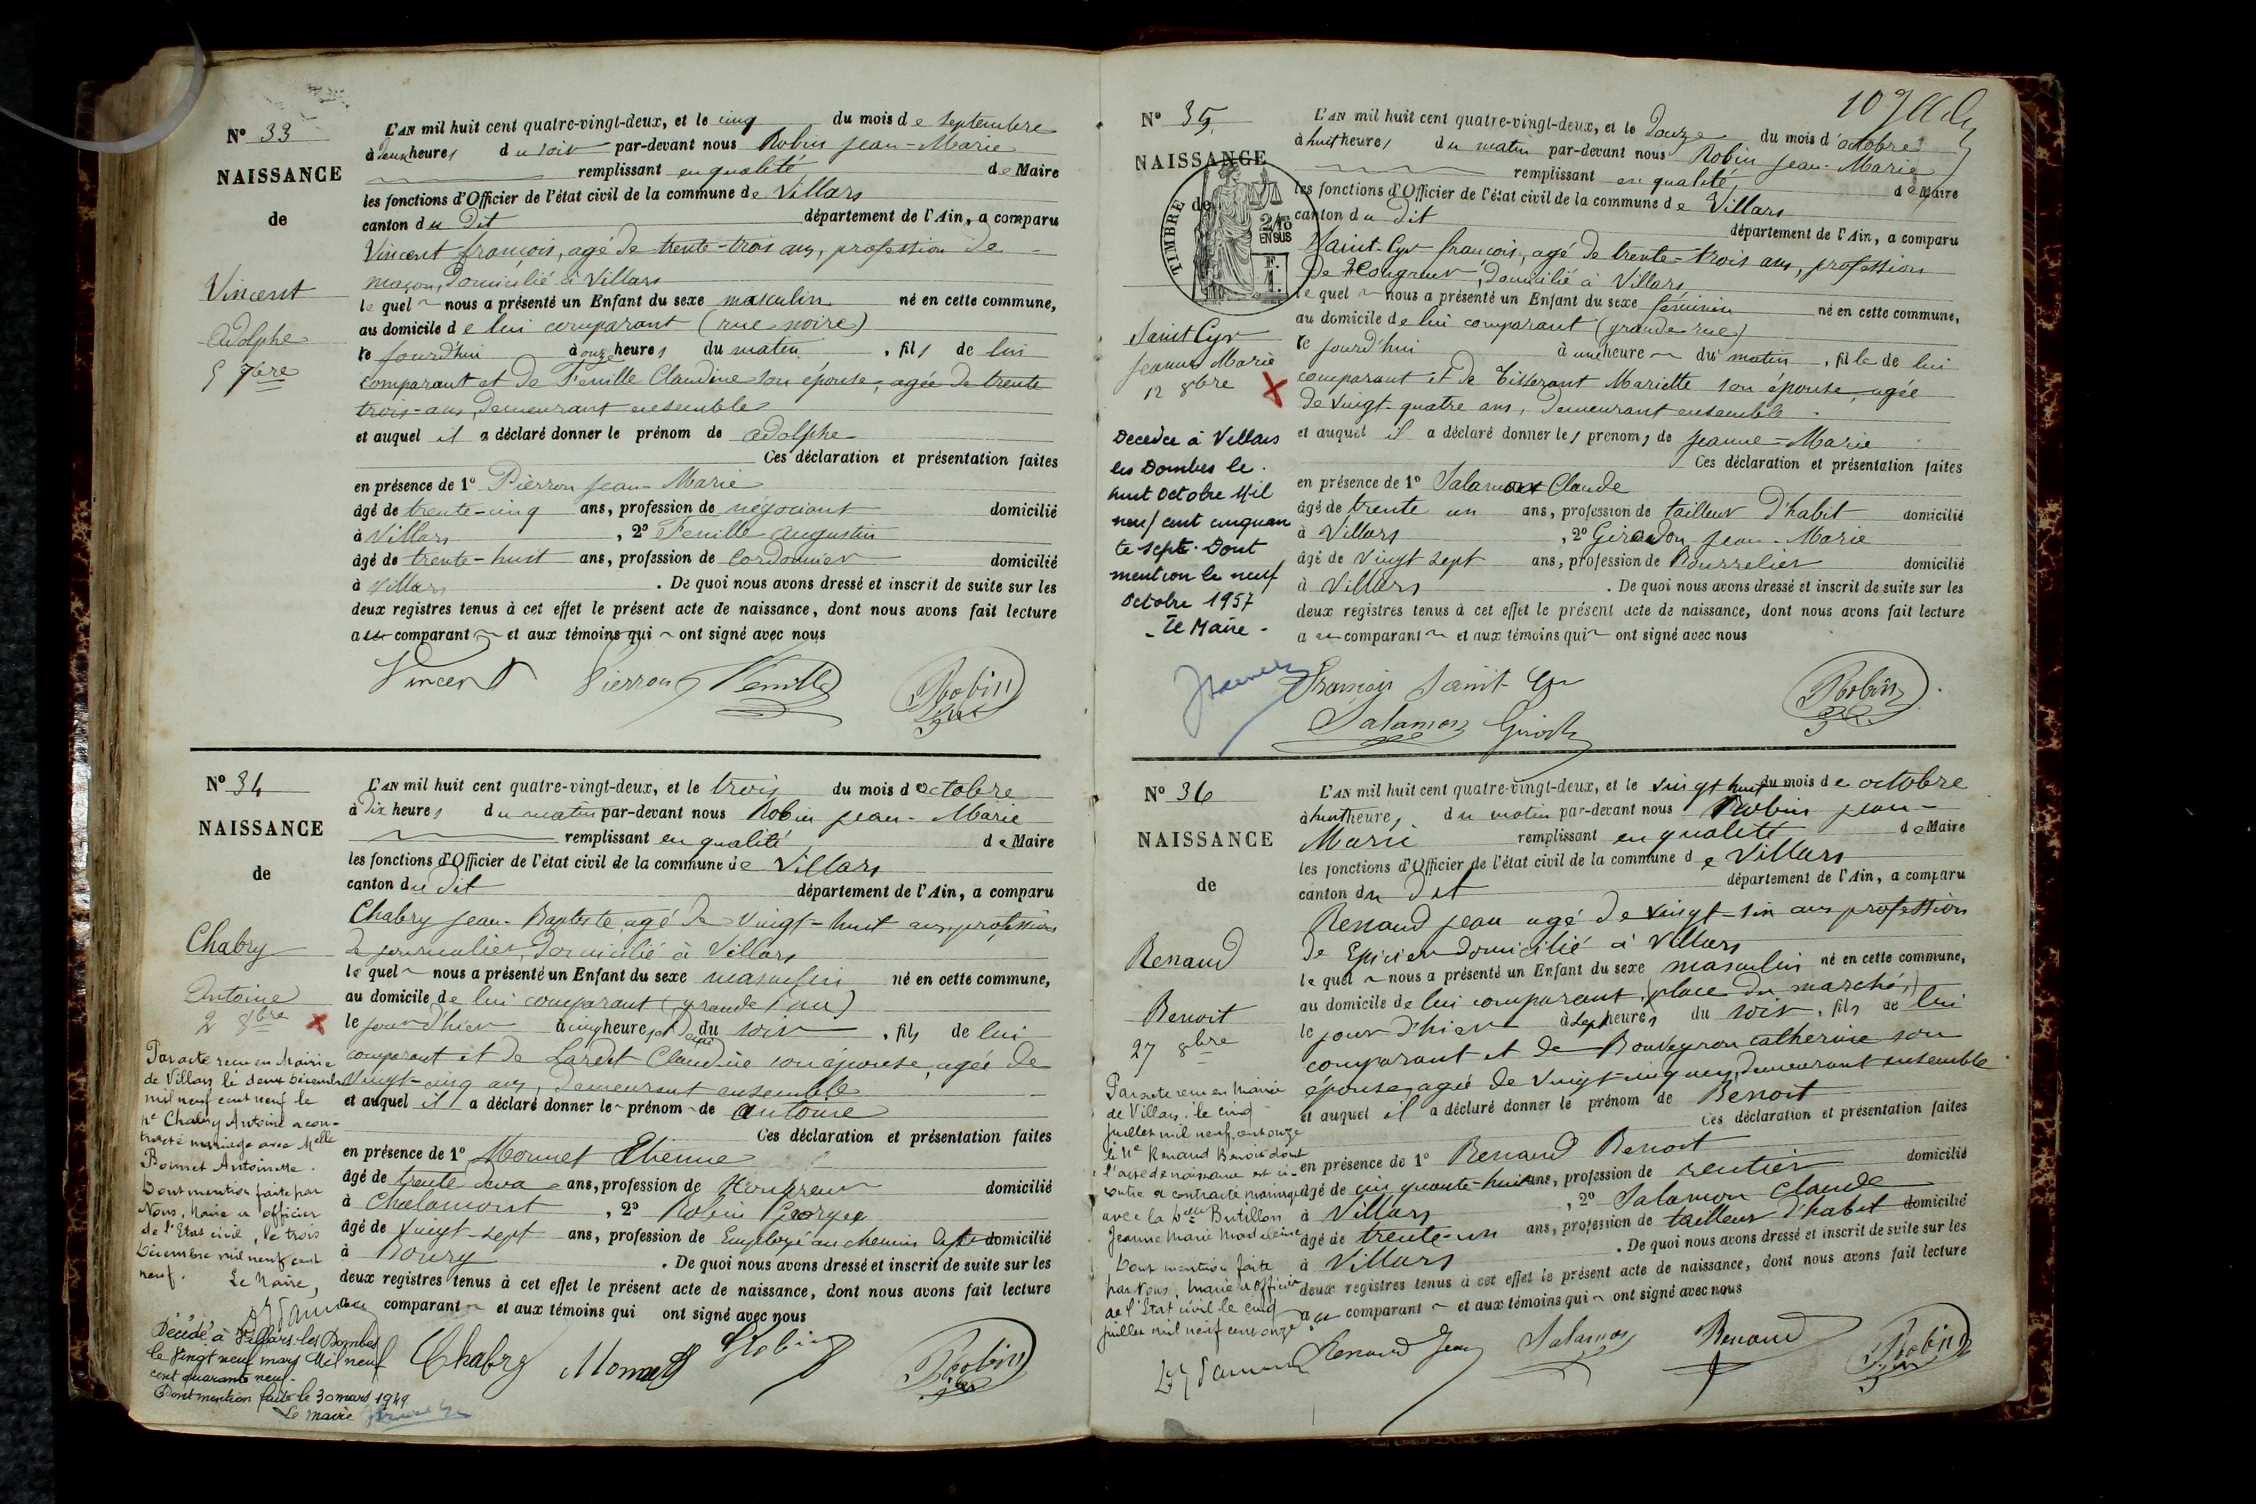 N° 33
NAISSANCE
de
Vincent
Adolphe
5 7bre
L'AN mil huit cent quatre-vingt-deux, et le cinq du mois de septembre
à deux heures du soir par-devant nous Robin Jean-Marie
remplissant en qualité de Maire
les fonctions d'Officier de l'état civil de la commune de Villars
canton du Dit département de l'Ain, a comparu
Vincent françois, agé de trente-trois ans, profession de
maçon, domicilié à Villars
le quel nous a présenté un Enfant du sexe masculin né en cette commune,
au domicile de lui comparant (rue noire)
le jourd'hui à onze heures du matin, fils de lui
comparant et de Feuille Claudine son épouse, agée de trente
trois ans, demeurant ensemble
et auquel il a déclaré donner le prénom de adolphe
Ces déclaration et présentation faites
en présence de 1° Pierron Jean-Marie
âgé de trente-cinq ans, profession de négociant domicilié
à Villars, 2° Feuille Augustin
âgé de trente-huit ans, profession de Cordonnier domicilié
à Villars. De quoi nous avons dressé et inscrit de suite sur les
deux registres tenus à cet effet le présent acte de naissance, dont nous avons fait lecture
au comparant et aux témoins qui ont signé avec nous
Vincent Pierron Feuille Robin
N° 34
NAISSANCE
de
Chabry
Antoine
2 8bre
Par acte reçu en Mairie
de Villars le deux Décembre
mil neuf cent neuf le
né Chabry Antoine a con-
tracté mariage avec Melle
Bonnet Antoinette.
Dont mention faite par
Nous, Maire et officier
de l'Etat civil, le trois
Décembre mil neuf cent
neuf. Le Maire,
Décédé à Villars-les-Dombes
le vingt neuf mars Mil neuf
cent quarante neuf.
Dont mention faite le 30 mars 1949
Le maire
L'AN mil huit cent quatre-vingt-deux, et le trois du mois d'octobre
à Dix heures du matin par-devant nous Robin Jean-Marie
remplissant en qualité de Maire
les fonctions d'Officier de l'état civil de la commune de Villars
canton du Dit département de l'Ain, a comparu
Chabry Jean-Baptiste agé de vingt-huit ans, profession
de journalier, domicilié à Villars
le quel nous a présenté un Enfant du sexe masculin né en cette commune,
au domicile de lui comparant (grande rue)
le jour d'hier à cinq heures et demi du soir, fils de lui
comparant et de Lardet Claudine son épouse, agée de
vingt-cinq ans, demeurant ensemble
et auquel il a déclaré donner le prénom de antoine
Ces déclaration et présentation faites
en présence de 1° Monnet Etienne
âgé de trente deux ans, profession de domicilié
à Chalamont, 2° Robin Georges
âgé de vingt-sept ans, profession de Employé au chemin de fer domicilié
à Bourg. De quoi nous avons dressé et inscrit de suite sur les
deux registres tenus à cet effet le présent acte de naissance, dont nous avons fait lecture
au comparant et aux témoins qui ont signé avec nous
Chabry Monnet Robin Robin
109
N° 35
NAISSANCE
de
TIMBRE
2/10
EN SUS
Saint Cyr
Jeanne Marie
12 8bre
Decedee à Villars
les Dombes le
huit Octobre Mil
neuf cent cinquan
te sept. Dont
mention le neuf
Octobre 1957
- Le Maire -
L'AN mil huit cent quatre-vingt-deux, et le Douze du mois d'octobre
à huit heures du matin par-devant nous Robin Jean-Marie
remplissant en qualité de Maire
les fonctions d'Officier de l'état civil de la commune de Villars
canton du Dit département de l'Ain, a comparu
Saint-Cyr françois, agé de trente-trois ans, profession
de Hongreur, domicilié à Villars
le quel nous a présenté un Enfant du sexe féminin né en cette commune,
au domicile de lui comparant (grande rue)
le jourd'hui à une heure du matin, fille de lui
comparant et de Tisserant Mariette son épouse, agée
de vingt-quatre ans, demeurant ensemble.
et auquel il a déclaré donner les prénoms de Jeanne-Marie
Ces déclaration et présentation faites
en présence de 1° Salamon Claude
âgé de trente un ans, profession de tailleur d'habit domicilié
à Villars, 2° Girodon Jean-Marie
âgé de vingt sept ans, profession de Bourrelier domicilié
à Villars. De quoi nous avons dressé et inscrit de suite sur les
deux registres tenus à cet effet le présent acte de naissance, dont nous avons fait lecture
au comparant et aux témoins qui ont signé avec nous
François Saint-Cyr
Salamon Robin
N° 36
NAISSANCE
de
Renaud
Benoit
27 8bre
Par acte reçu en Mairie
de Villars, le cinq
juillet mil neuf cent onze
le né Renaud Benoit dont
l'acte de naissance est ci-
contre a contracté mariage
avec la delle Butillon
Jeanne Marie Madeleine
Dont mention faite
par Nous, maire et Officier
de l'Etat civil le cinq
juillet mil neuf cent onze
L'AN mil huit cent quatre-vingt-deux, et le vingt huit du mois de octobre
à huit heures du matin par-devant nous Robin Jean-
Marie remplissant en qualité de Maire
les fonctions d'Officier de l'état civil de la commune de Villars
canton du Dit département de l'Ain, a comparu
Renaud Jean agé de vingt-six ans profession
de Epicier domicilié à Villars
le quel nous a présenté un Enfant du sexe masculin né en cette commune,
au domicile de lui comparant (place du marché)
le jour d'hier à sept heures du soir, fils de lui
comparant et de Bouveyron catherine son
épouse, agée de vingt-cinq ans, demeurant ensemble
et auquel il a déclaré donner le prénom de Benoit
Ces déclaration et présentation faites
en présence de 1° Renaud Benoit
âgé de cinquante-huit ans, profession de rentier domicilié
à Villars, 2° Salamon Claude
âgé de trente-un ans, profession de tailleur d'habit domicilié
à Villars. De quoi nous avons dressé et inscrit de suite sur les
deux registres tenus à cet effet le présent acte de naissance, dont nous avons fait lecture
au comparant et aux témoins qui ont signé avec nous
Renaud Jean Salamon Renaud Robin